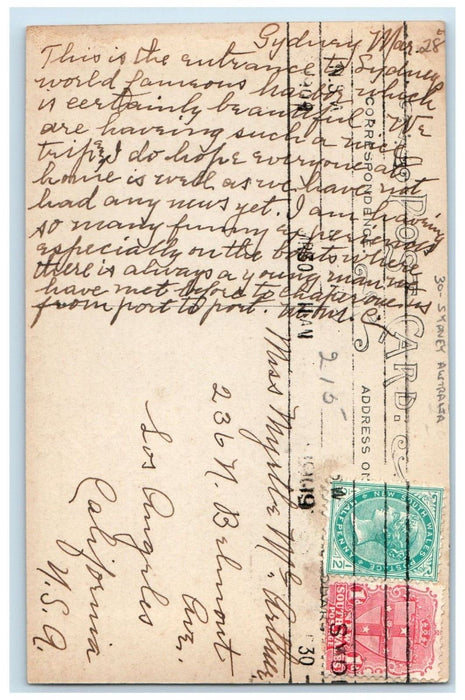 Sydney Mar. 28
This is the entrance to Sydney
world famous harbor which
is certainly beautiful. We
are haveing such a nice
trip & I do hope everyone at
home is well as we have not
had any news yet. I am having
so many funny experiences
especially on the boats where
there is always a young man we
have met before to chaperone us
from port to port.
POST CARD.
CORRESPONDENCE
ADDRESS ON
Miss Myrtle McArthur
236 N. Belmont
Ave.
Los Angeles
California
U.S.A.
215
30- SYDNEY AUSTRALIA
SOUTH WALES POSTAGE
HALFPENNY
1/2
SOUTH
SYD
30